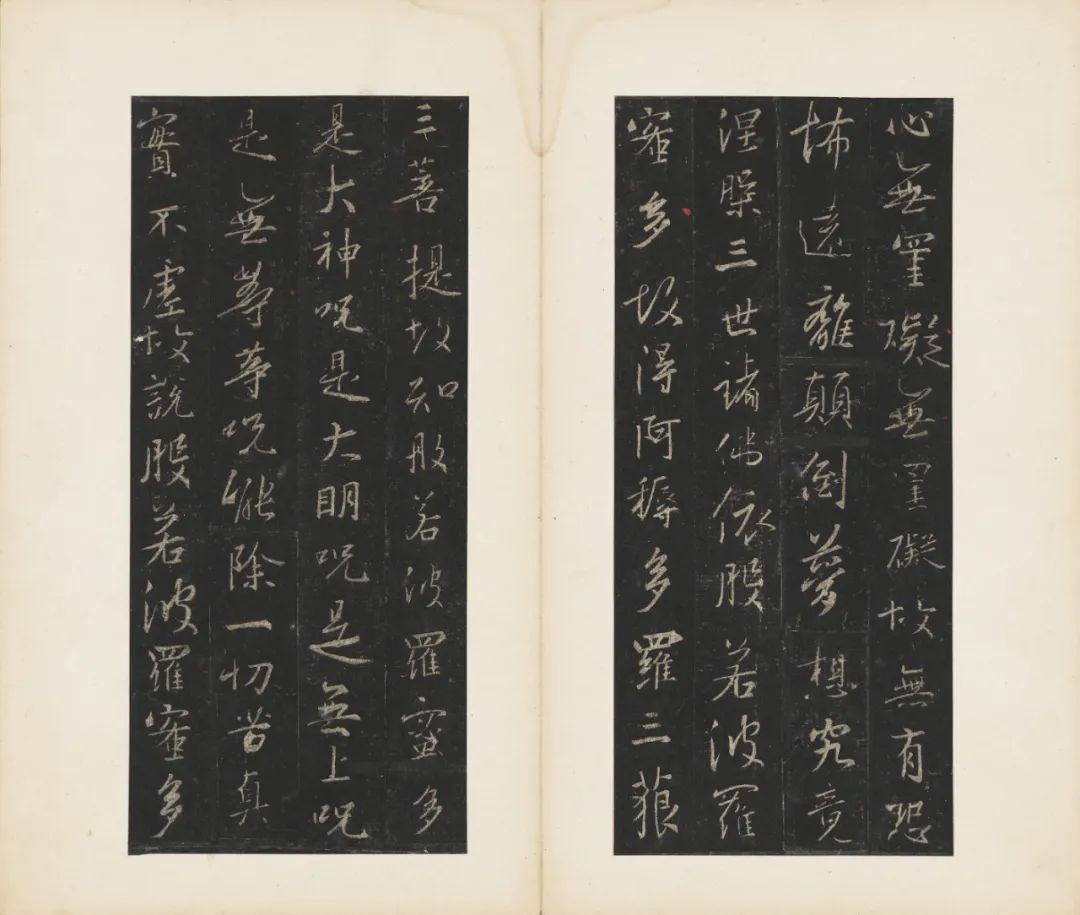 心無罣礙無罣礙故無有恐
怖遠離顛倒夢想究竟
涅槃三世諸佛依般若波羅
蜜多故得阿耨多羅三藐
三菩提故知般若波羅蜜多
是大神咒是大明咒是無上咒
是無等等咒能除一切苦真
實不虛故說般若波羅蜜多